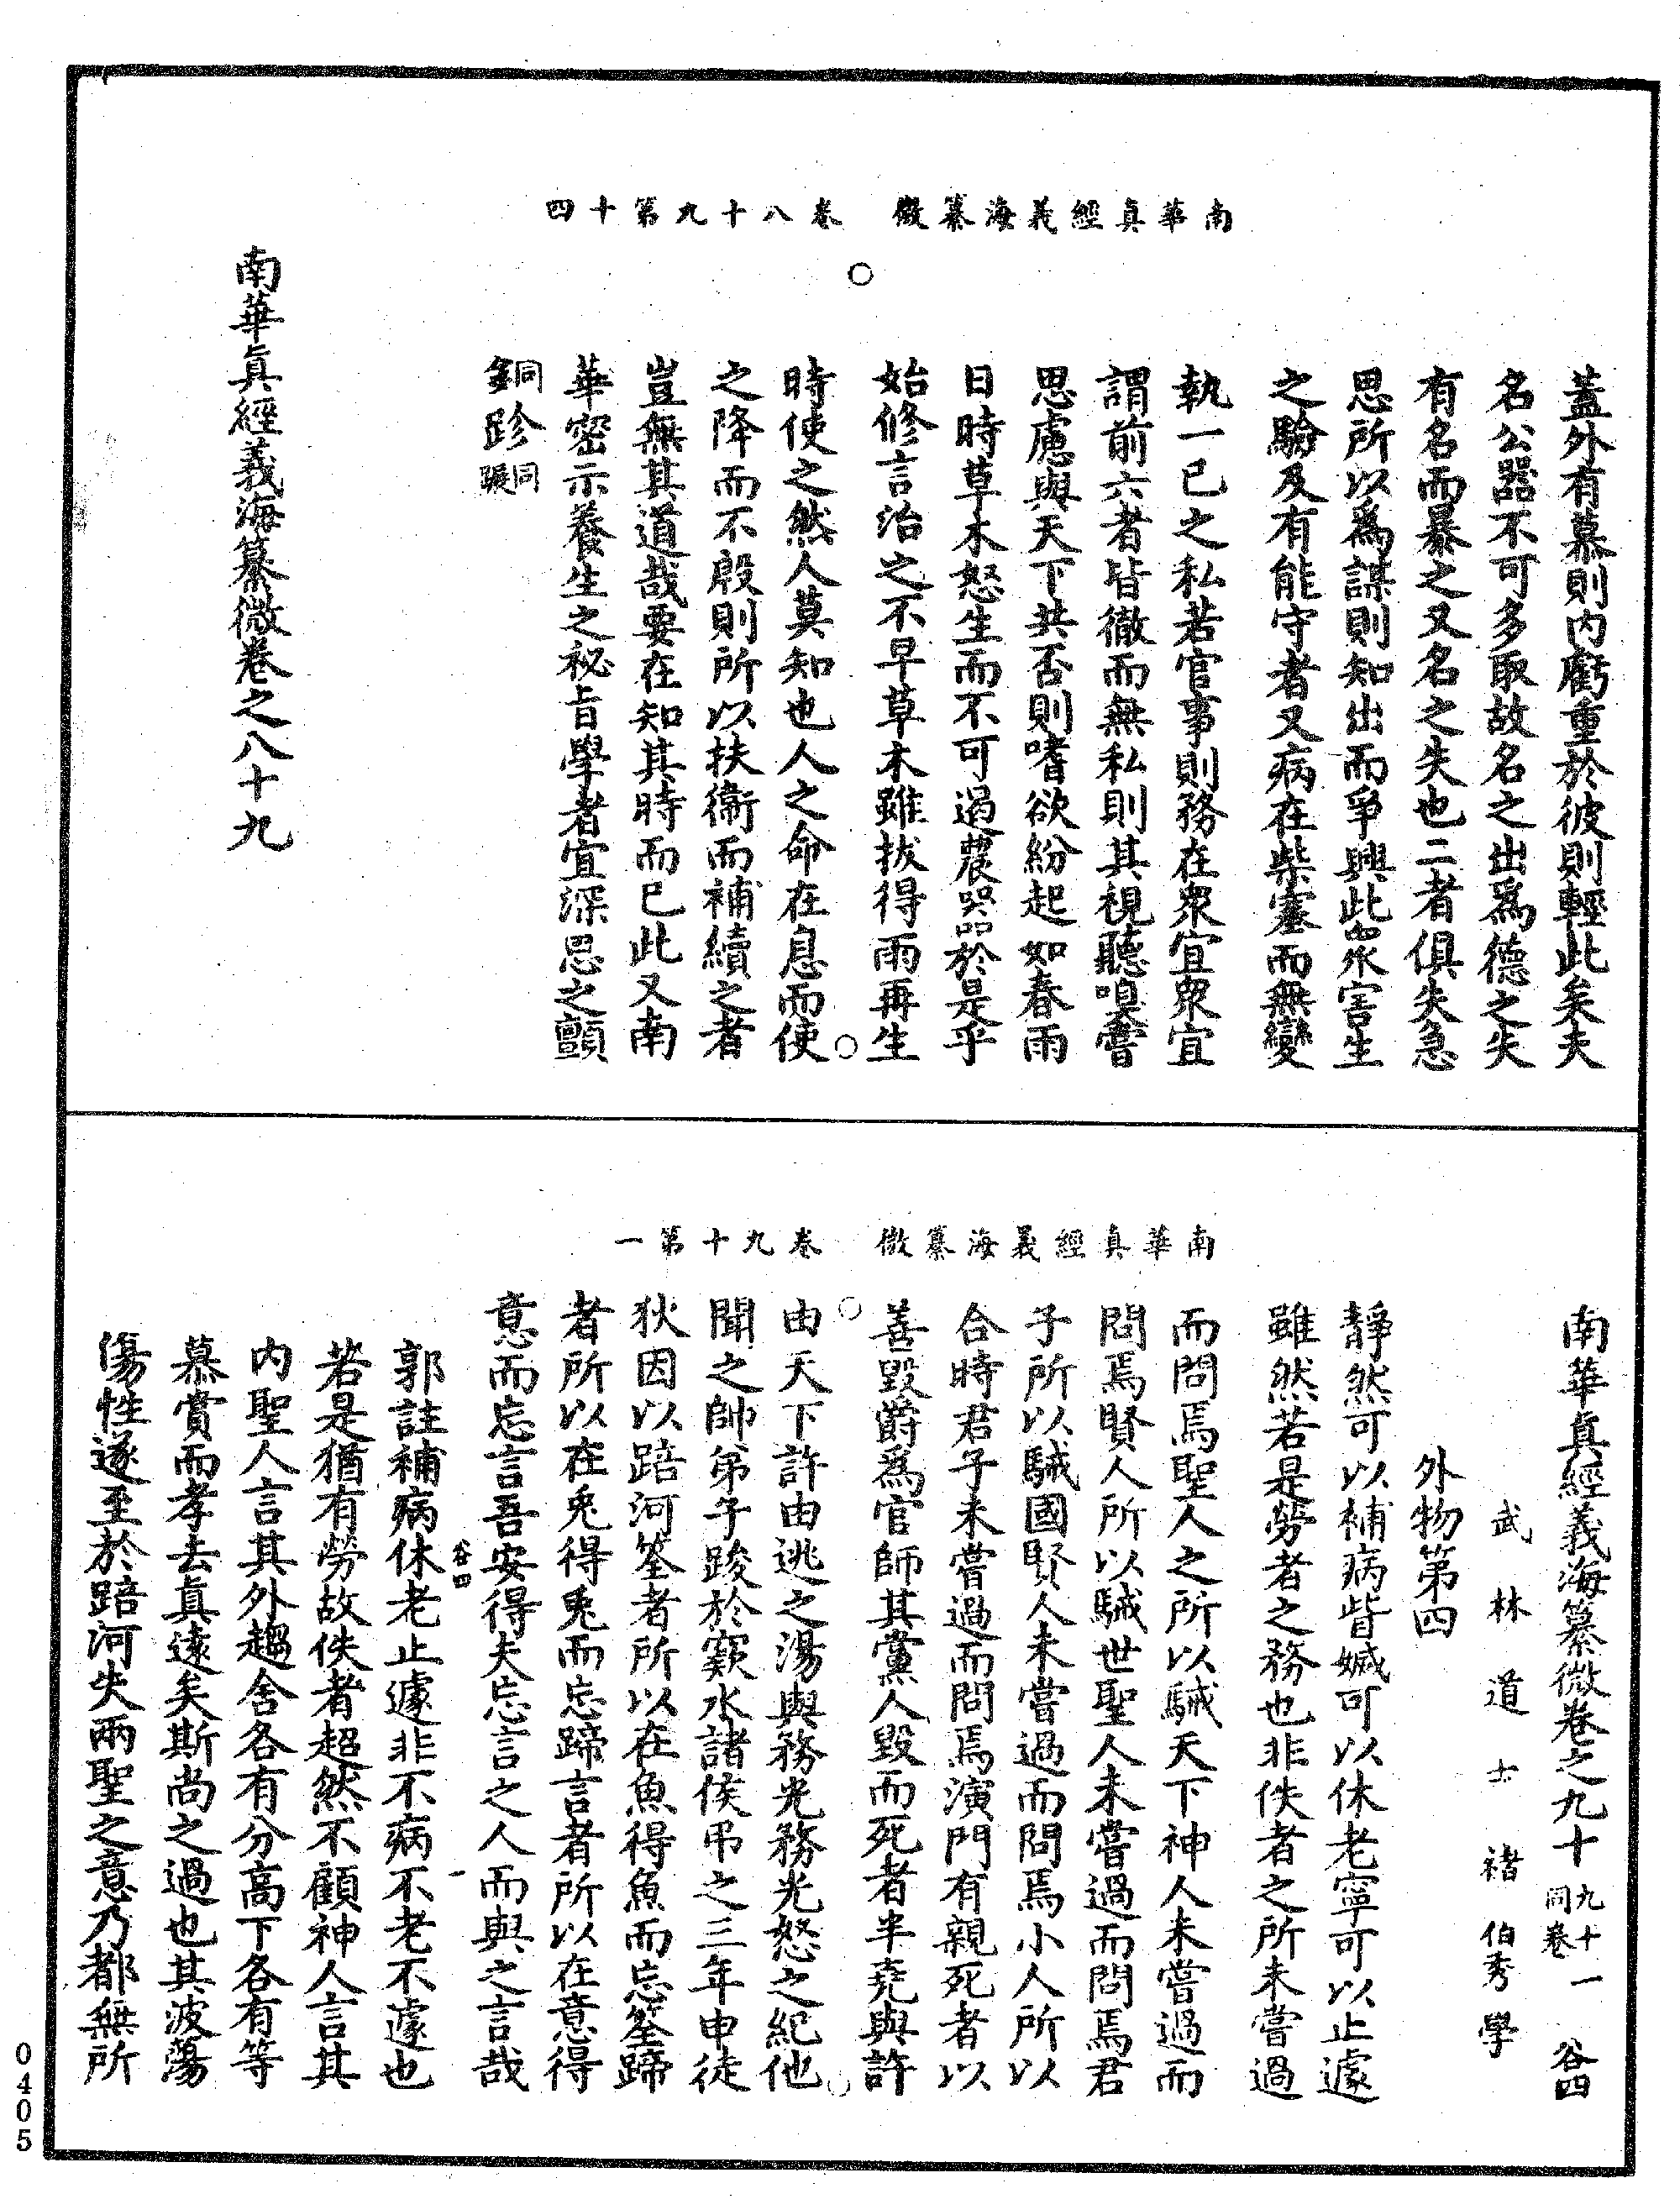 南華真經義海纂微　卷八十九第十四
蓋外有慕則内虧重於彼則輕此矣夫
名公器不可多取故名之出爲德之失
有名而暴之又名之失也二者俱失急
思所以爲謀則知出而爭興此眾害生
之驗及有能守者又病在柴塞而無變
執一己之私若官事則務在眾宜眾宜
謂前六者皆徹而無私則其視聽嗅嘗
思慮與天下共否則嗜欲紛起如春雨
日時草木怒生而不可遏農器於是乎
始修言治之不早草木雖拔得雨再生
時使之然人莫知也人之命在息而使
之降而不殷則所以扶衞而補續之者
豈無其道哉要在知其時而已此又南
華密示養生之祕旨學者宜深思之顫
同跈同
南華真經義海纂微卷之八十九
南華真經義海纂微　卷九十第一
南華真經義海纂微卷之九十 九十一同卷 谷四
武林道士褚伯秀學
外物第四
靜然可以補病眥搣可以休老寧可以止遽
雖然若是勞者之務也非佚者之所未嘗過
而問焉聖人之所以駴天下神人未嘗過而
問焉賢人所以駴世聖人未嘗過而問焉君
子所以駴國賢人未嘗過而問焉小人所以
合時君子未嘗過而問焉演門有親死者以
善毀爵爲官師其黨人毀而死者半堯與許
由天下許由逃之湯與務光務光怒之紀他
聞之帥弟子踆於窾水諸侯弔之三年申徒
狄因以踣河筌者所以在魚得魚而忘筌蹄
者所以在兎得兎而忘蹄言者所以在意得
意而忘言吾安得夫忘言之人而與之言哉
谷四　一
郭註補病休老止遽非不病不老不遽也
若是猶有勞故佚者超然不顧神人言其
内聖人言其外趨舍各有分高下各有等
慕賞而孝去真遠矣斯尚之過也其波蕩
傷性遂至於踣河失兩聖之意乃都無所
0405